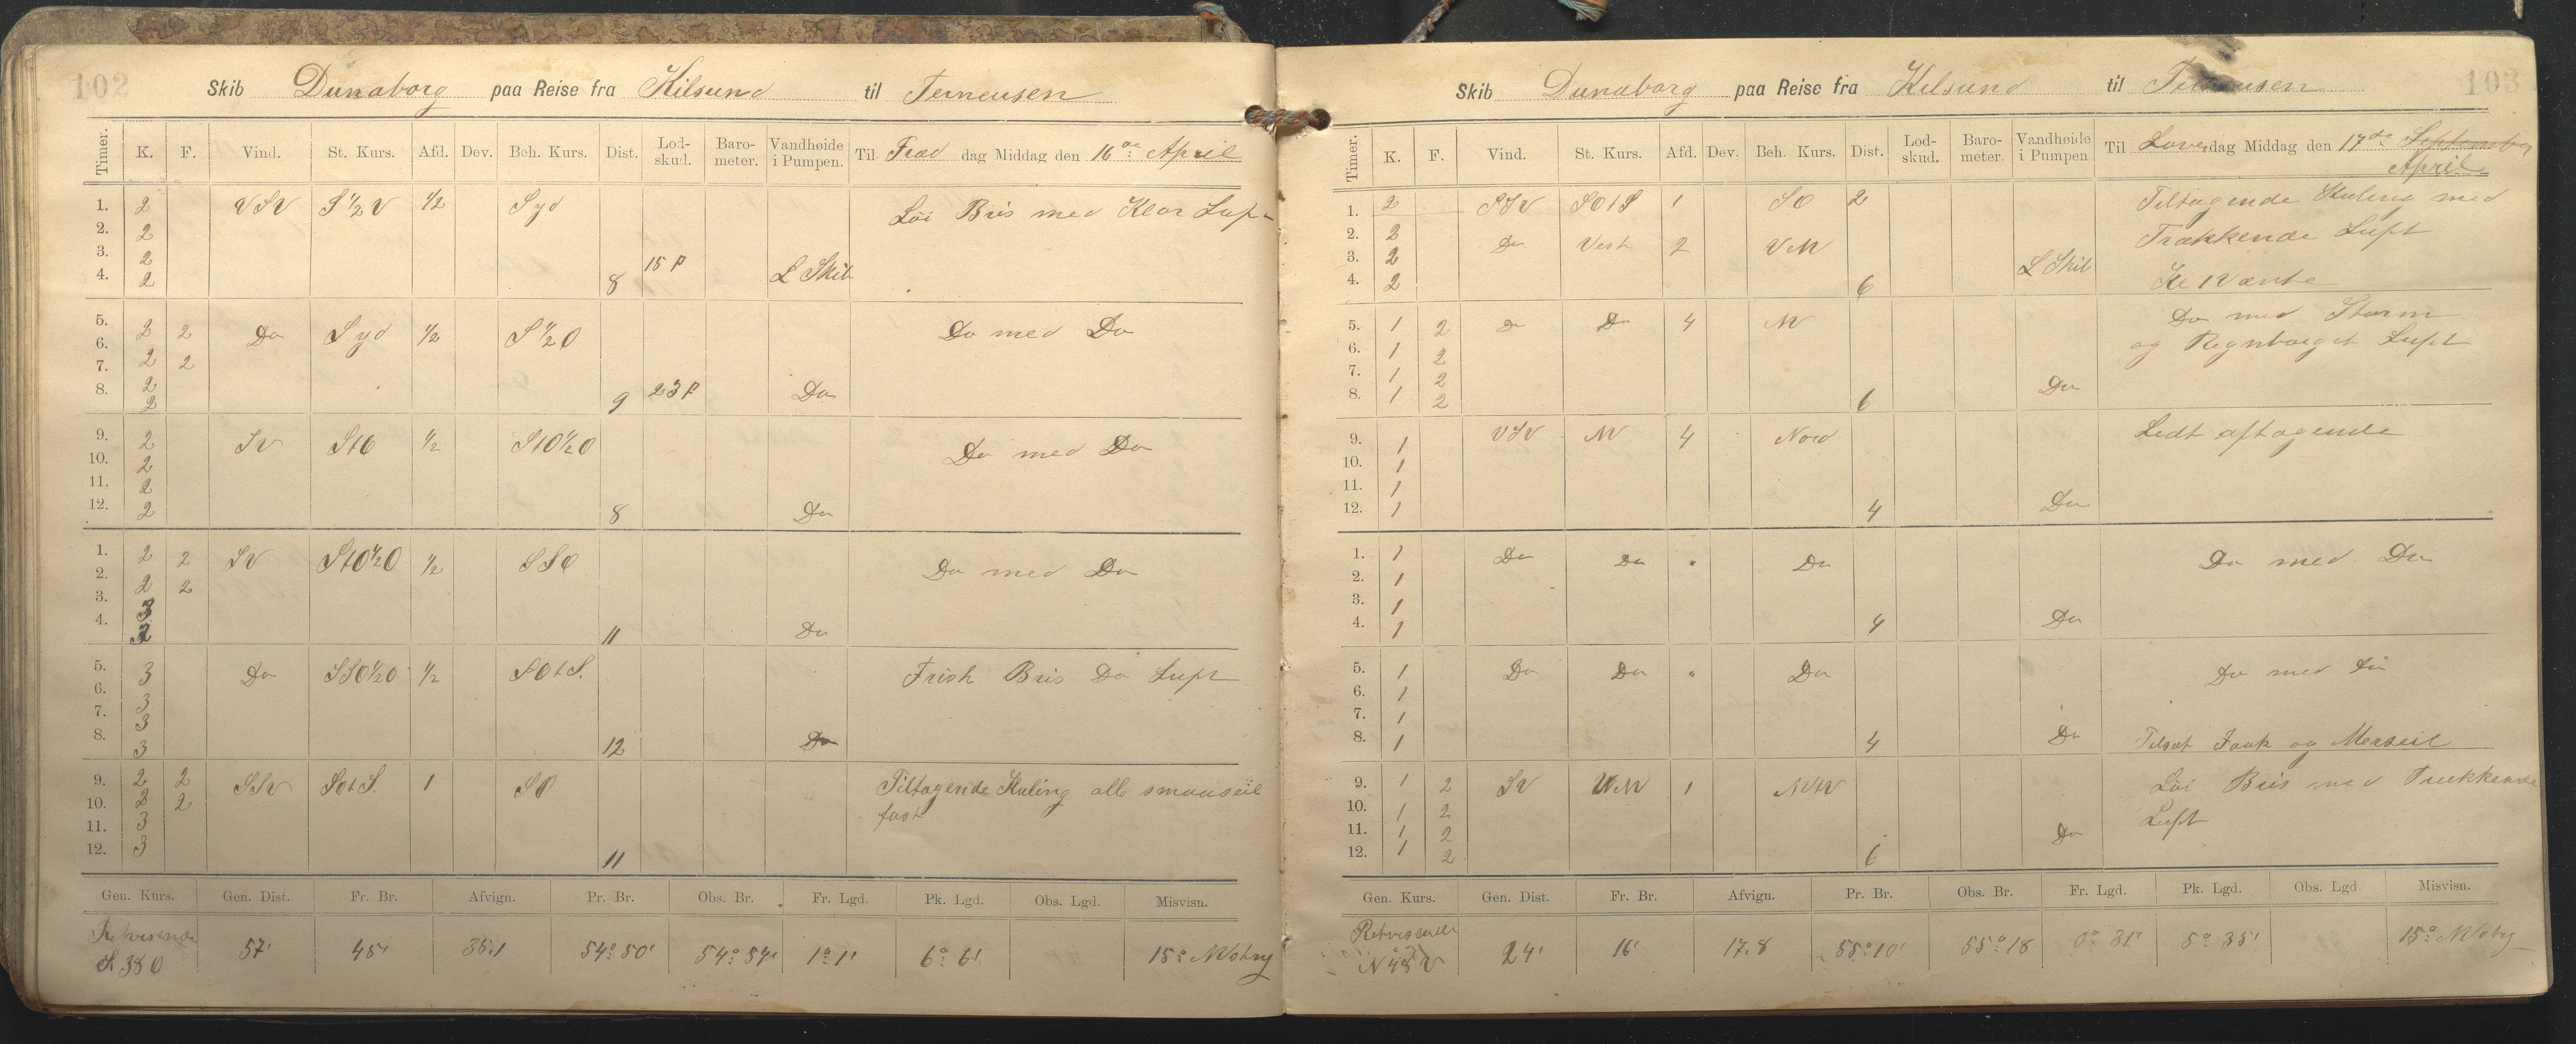 102
Skib Dunaborg paa Reise fra Kilsund til Terneusen
Timer. K. F. Vind. St. Kurs. Afd. Dev. Beh. Kurs. Dist. Lod-skud. Baro-meter. Vandhøide i Pumpen. Til Fredag Middag den 16de April
1. 2 VSV S½V ½ Syd Löi Bris med Klar Luft
2. 2
3. 2 15 f L Skib
4. 2 8
5. 2 2 Do Syd ½ S½O Do med Do
6.
7. 2 2
8. 2 23 f Do
2 9
9. 2 SV StO ½ StO½O Do med Do
10. 2
11. 2
12. 2 8 Do
1. 2 2 SV StO½O ½ SSO Do med Do
2. 2 2
3. 3
4. 11 Do
5. 3 Do SSO½O ½ SOtS. Frisk Bris Do Luft
6. 3
7. 3
8. 3 12 Do
9. 2 2 SSV SOtS. 1 SO Tiltagende Kuling alle smaaseil
10. 2 2 fast
11. 3
12. 3 11
Gen. Kurs. Gen. Dist. Fr. Br. Afvign. Pr. Br. Obs. Br. Fr. Lgd. Pk. Lgd. Obs. Lgd. Misvisn.
Retvisende
S 38 O 57' 45' 35.1 54° 50' 54° 54' 1° 1' 6° 6' 15° NVstry
103
Skib Dunaborg paa Reise fra Kilsund til Terneusen
Timer. K. F. Vind. St. Kurs. Afd. Dev. Beh. Kurs. Dist. Lod-skud. Baro-meter. Vandhøide i Pumpen Til Löverdag Middag den 17de September
April
1. 2 SSV SOtS 1 SO 2 Tiltagende Kuling med
2. 2 Do Vest 2 VNV Trækkende Luft
3. 2 L Skib
4. 2 6
5. 1 2 Do Do 4 NV Do med Storm
6. 1 2 og Regnbyget Luft
7. 1 2
8. 1 2 6 Do
9. 1 VSV NV 4 Nord Ledt aftagende
10. 1
11. 1
12. 1 4 Do
1. 1 Do Do " Do Do med Do
2. 1
3. 1
4. 1 4 Do
5. 1 Do Do " Do Do med Do
6. 1
7. 1
8. 1 4 Do Tilsat Fook og Merseil
9. 1 2 SV VNV 1 NVtV Löi Bris med Trækkende
10. 1 2 Luft
11. 1 2 Do
12. 1 2 6
Gen. Kurs. Gen. Dist. Fr. Br. Afvign. Pr. Br. Obs. Br. Fr. Lgd. Pk. Lgd. Obs. Lgd. Misvisn.
Retvisende
N 48 V 24' 16' 17.8 55° 10' 55° 18 0° 31' 5° 35' 15° NVstry